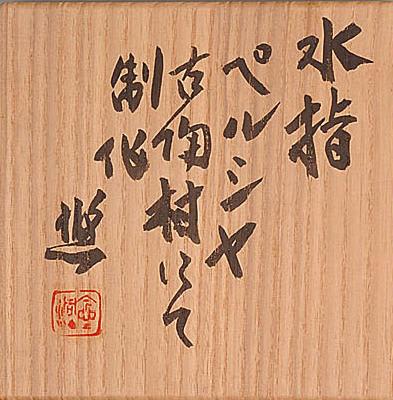 水指
ペルシヤ
古陶村にて
制作